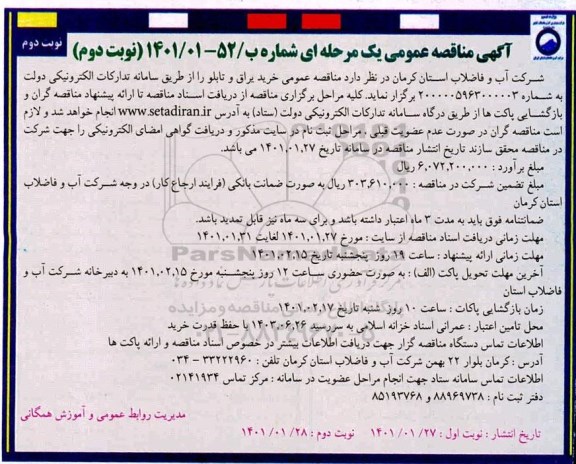 نوبت دوم
آگهی مناقصه عمومی یک مرحله ای شماره ب/۵۲-۱۴۰۱/۰۱ (نوبت دوم)
شرکت آب و فاضلاب استان کرمان در نظر دارد مناقصه عمومی خرید یراق و تابلو را از طریق سامانه تدارکات الکترونیکی دولت
به شماره ۲۰۰۰۰۰۵۹۶۳۰۰۰۰۰۳ برگزار نماید. کلیه مراحل برگزاری مناقصه از دریافت اسناد مناقصه تا ارائه پیشنهاد مناقصه گران و
بازگشایی پاکت ها از طریق درگاه سامانه تدارکات الکترونیکی دولت (ستاد) به آدرس www.setadiran.ir انجام خواهد شد و لازم
است مناقصه گران در صورت عدم عضویت قبلی، مراحل ثبت نام در سایت مذکور و دریافت گواهی امضای الکترونیکی را جهت شرکت
در مناقصه محقق سازند تاریخ انتشار مناقصه در سامانه تاریخ ۱۴۰۱.۰۱.۲۷ می باشد.
مبلغ برآورد : ۶,۰۷۲,۲۰۰,۰۰۰ ریال
مبلغ تضمین شرکت در مناقصه : ۳۰۳,۶۱۰,۰۰۰ ریال به صورت ضمانت بانکی (فرایند ارجاع کار) در وجه شرکت آب و فاضلاب
استان کرمان
ضمانتنامه فوق باید به مدت ۳ ماه اعتبار داشته باشد و برای سه ماه نیز قابل تمدید باشد.
مهلت زمانی دریافت اسناد مناقصه از سایت : مورخ ۱۴۰۱.۰۱.۲۷ لغایت ۱۴۰۱.۰۱.۳۱
مهلت زمانی ارائه پیشنهاد : ساعت ۱۹ روز پنجشنبه تاریخ ۱۴۰۱.۰۲.۱۵
آخرین مهلت تحویل پاکت (الف) : به صورت حضوری ساعت ۱۲ روز پنجشنبه مورخ ۱۴۰۱.۰۲.۱۵ به دبیرخانه شرکت آب و
فاضلاب استان
زمان بازگشایی پاکات : ساعت ۱۰ روز شنبه تاریخ ۱۴۰۱.۰۲.۱۷
محل تامین اعتبار : عمرانی اسناد خزانه اسلامی به سررسید ۱۴۰۳.۰۶.۲۶ با حفظ قدرت خرید
اطلاعات تماس دستگاه مناقصه گزار جهت دریافت اطلاعات بیشتر در خصوص اسناد مناقصه و ارائه پاکت ها
آدرس : کرمان بلوار ۲۲ بهمن شرکت آب و فاضلاب استان کرمان تلفن : ۳۳۲۲۲۹۶۰ - ۰۳۴
اطلاعات تماس سامانه ستاد جهت انجام مراحل عضویت در سامانه : مرکز تماس ۰۲۱۴۱۹۳۴
دفتر ثبت نام : ۸۸۹۶۹۷۳۸ و ۸۵۱۹۳۷۶۸
مدیریت روابط عمومی و آموزش همگانی
تاریخ انتشار : نوبت اول : ۲۷/ ۰۱/ ۱۴۰۱ نوبت دوم : ۲۸/ ۰۱/ ۱۴۰۱